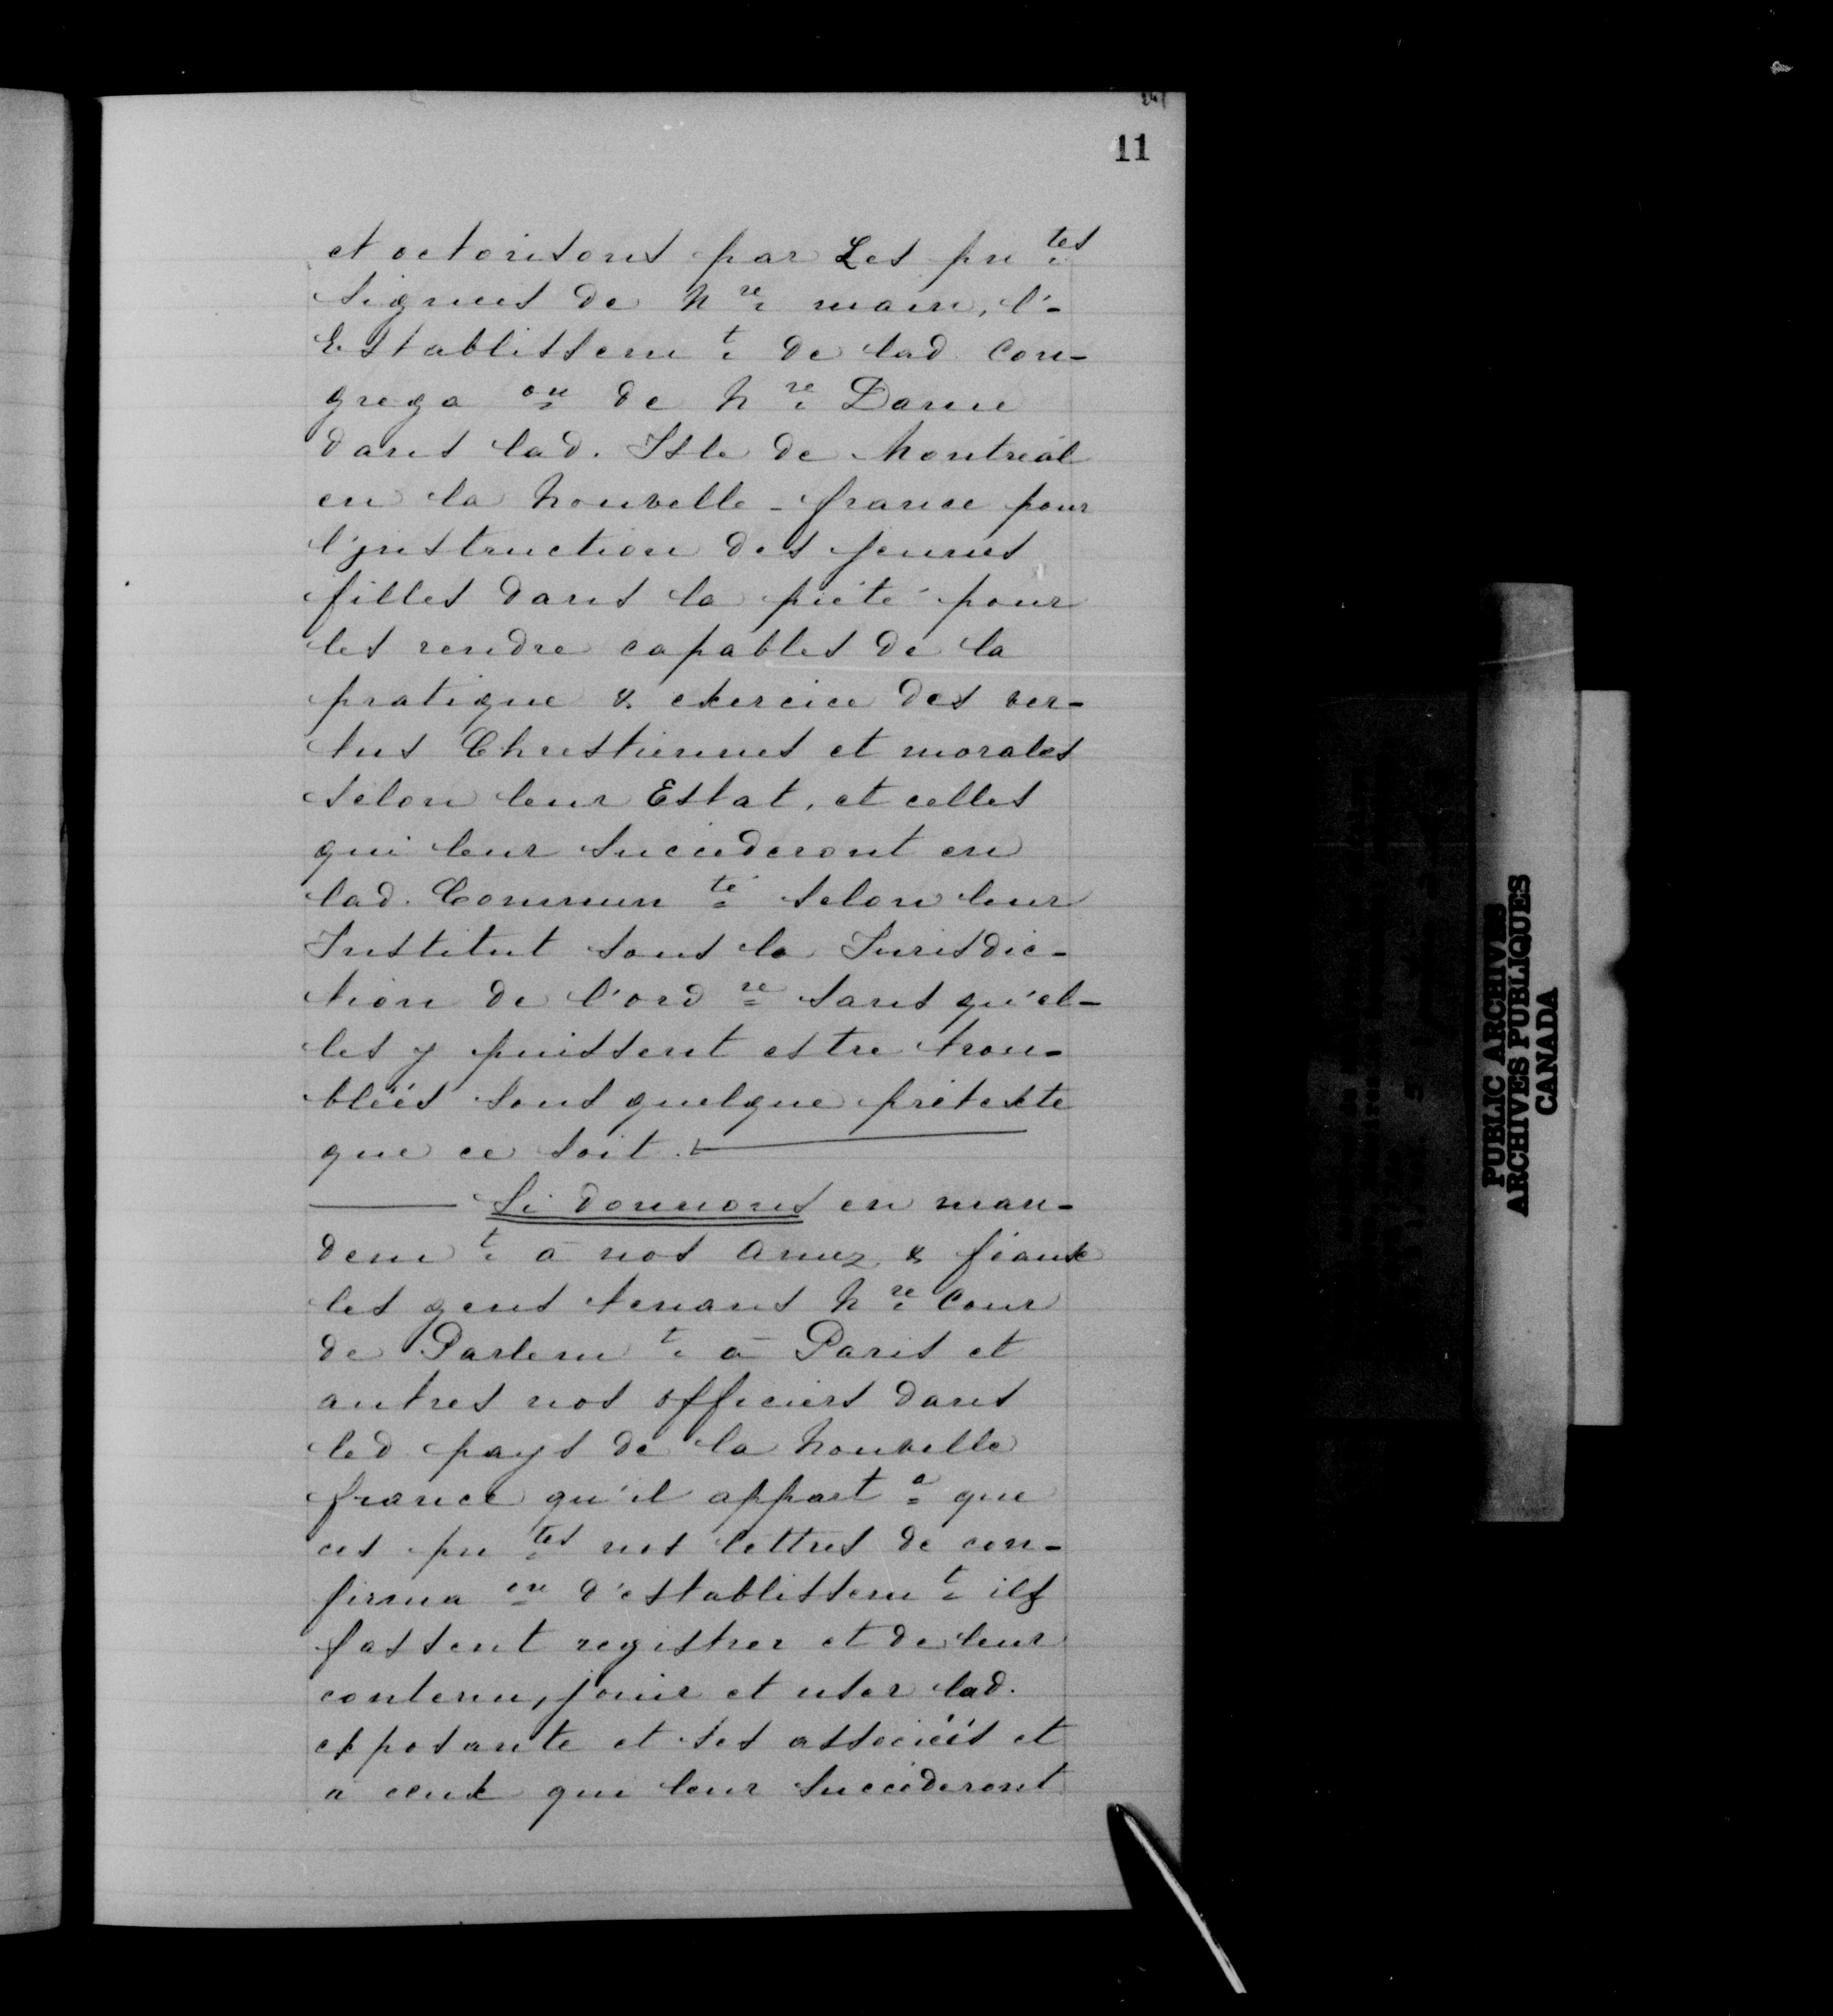 11
et octorisons par Les pntes
signées de nre main, l'-
Establissemt de lad. Con-
gregaon de Nre Dame
dans lad. Isle de Montreal
en la Nouvelle-france pour
l'jnstruction des jeunes
filles dans la piété pour
les rendre capables de la
pratique & exercice des ver-
tus Chrestiennes et morales
selon leur Estat, et celles
qui leur succéderont en
lad. Communté selon leur
Institut sous la Jurisdic-
tion de l'ordre sans qu'el-
les y puissent estre trou-
bléés sous quelque prétexte
que ce soit.
Si donnons en man-
demt à nos Amez & féaux
les gens tenans Nre Cour
de Parlemt à Paris et
autres nos officiers dans
led. pays de la Nouvelle
france qu'il apparta que
ces pntes nos lettres de con-
firmaon d'establissemt ils
fassent registrer et de leur
contenu, jouir et user lad.
exposante et ses associéés et
à ceux qui leur succéderont
PUBLIC ARCHIVES
ARCHIVES PUBLIQUES
CANADA